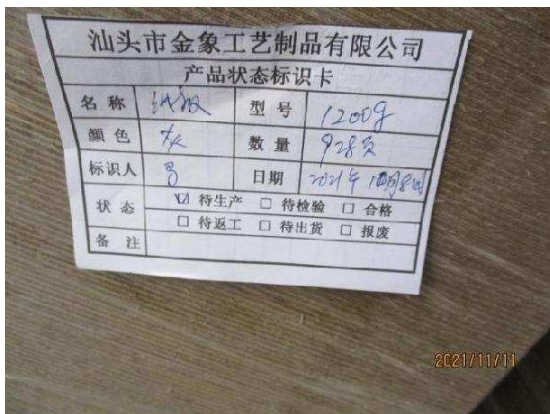 汕头市金象工艺制品有限公司
产品状态标识卡
名称 纸板 型号 1200g
颜色 灰 数量 928页
标识人 日期 2021年10月8日
状态 ☑ 待生产 □ 待检验 □ 合格
□ 待返工 □ 待出货 □ 报废
备注
2021/11/11